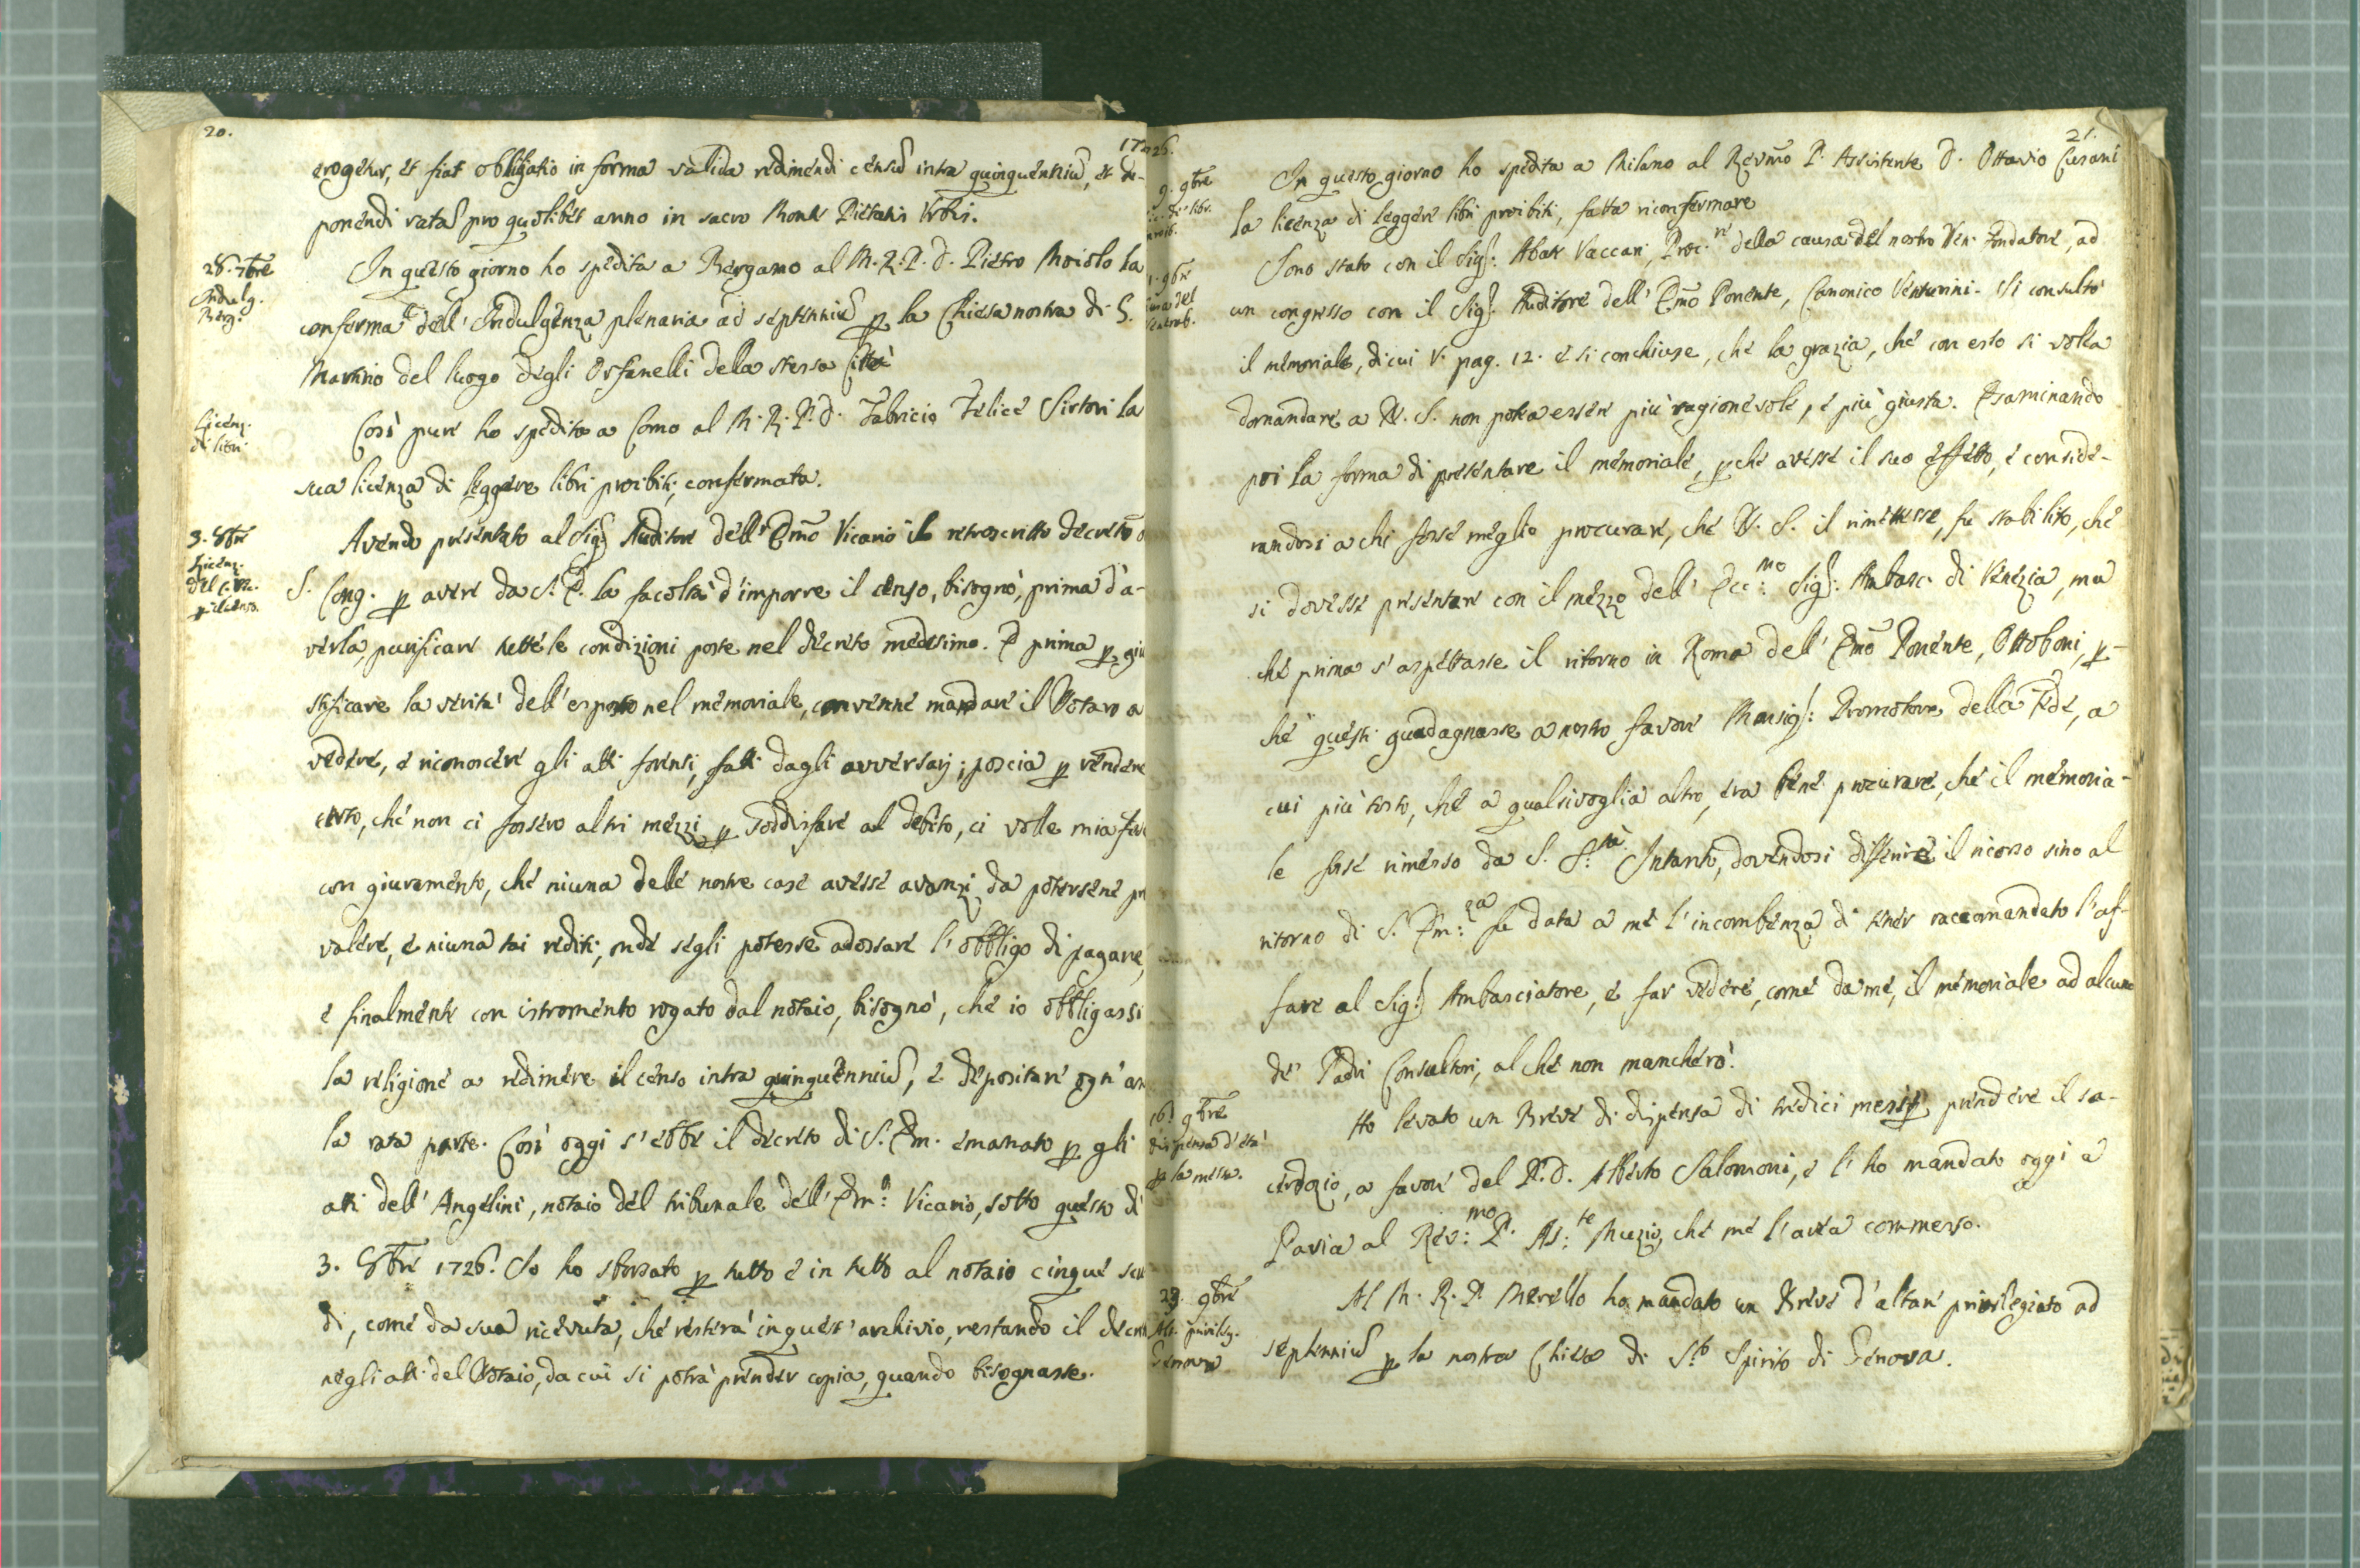 20.
1726.
erogetur, et fiat obligatio in forma valida redimendi censũ intra quinquenniũ, et de-
ponendi ratã pro quolibet anno in sacro Monte Pietatis Urbis.
28. 7bre
Indulg.
Berg.
In questo giorno ho spedita a Bergamo al M. R. P. D. Pietro Moiolo la
conferma dell' Indulgenza plenaria ad septenniũ p la Chiesa nostra di S.
Martino del luogo degli Orfanelli della stessa Città
Licenz.
di libri
Così pure ho spedito a Como al M. R. P. D. Fabricio Felice Sirtori la
sua licenza di leggere libri proibiti, confermata.
3. 8bre
Licenz.
del
p il censo.
Avendo presentato al Sig. Auditore dell' Emo Vicario il retroscritto decreto
S. Cong. p avere da S. E. la facoltà d'imporre il censo, bisognò, prima d'a-
verla, purificare tutte le condizioni poste nel decreto medesimo. E prima p giu
stificare la verità dell' esposto nel memoriale, convenne mandare il Notaro a
vedere, e riconoscere gli atti forensi, fatti dagli avversarj; poscia p rendere
certo, che non ci fossero altri mezzi p soddisfare al debito, ci volle mia fede
con giuramento, che niuna delle nostre case avesse avanzi da potersene pre
valere, e niuna tai rediti, onde segli potesse adossare l' obbligo di pagare,
e finalmente con istromento rogato dal notaio, bisognò, che io obbligassi
la religione a redimere il censo intra quinquenniũ, e depositare ogn' an
la rata parte. Così oggi s' ebbe il decreto di S. Em. emanato p gli
atti dell' Angelini, notaio del tribunale dell' Em.o Vicario, sotto questo dì
3. 8bre 1726. Io ho sborsato p tutto e in tutto al notaio cinque scu
di, come da sua ricevuta, che resterà in quest' archivio, restando il decre
negli atti del Notaio, da cui si potrà prender copia, quando bisognasse.
21.
9. 9bre
Lic. di libr.
proib.
In questo giorno ho spedita a Milano al Revmo P. Assistente D. Ottavio Cusani
la licenza di leggere libri proibiti, fatta riconfermare
9bre
Causa del
Venerab.
Sono stato con il Sig: Abate Vaccari, Proc.re della causa del nostro Ven. Fondatore, ad
un congresso con il Sig. Auditore dell' Emo Ponente, Canonico Venturini. Si consultò
il memoriale, di cui V. pag. 12. e si conchiuse, che la grazia, che con esso si volea
domandare a N. S. non potea essere più ragionevole, e più giusta. Esaminando
poi la forma di presentare il memoriale, pche avesse il suo effetto, e conside-
randosi a chi fosse meglio procurare, che N. S. il rimettesse, fu stabilito, che
si dovesse presentare con il mezzo dell' Ecc:mo Sig: Ambasc. di Venezia, ma
che prima s' aspettasse il ritorno in Roma dell' Emo Ponente, Ottoboni, p-
chè questi guadagnasse a nostro favore Monsig: Promotore della Fede, a
cui più tosto, che a qualsivoglia altro, era bene procurare, che il memoria-
le fosse rimesso da S. S:tà. Intanto, dovendosi differire il ricorso sino al
ritorno di S. Em:za fu data a me l' incombenza di tener raccomandato l' af-
fare al Sig: Ambasciatore, e far vedere, come da me, il memoriale ad alcuno
de' Padri Consultori, al che non mancherò.
16. 9bre
Dispensa d' età
p la messa.
Ho levato un Breve di dispensa di tredici mesi p prendere il sa-
cerdozio, a favore del P. D. Alberto Salomoni, e l' ho mandato oggi a
Pavia al Rev:mo P. As:te Muzio, che me l' avea commesso.
23. 9bre
Alt. privileg.
Genova
Al M. R. P. Merello ho mandato un Breve d' altare privilegiato ad
septenniũ p la nostra Chiesa di S.to Spirito di Genova.